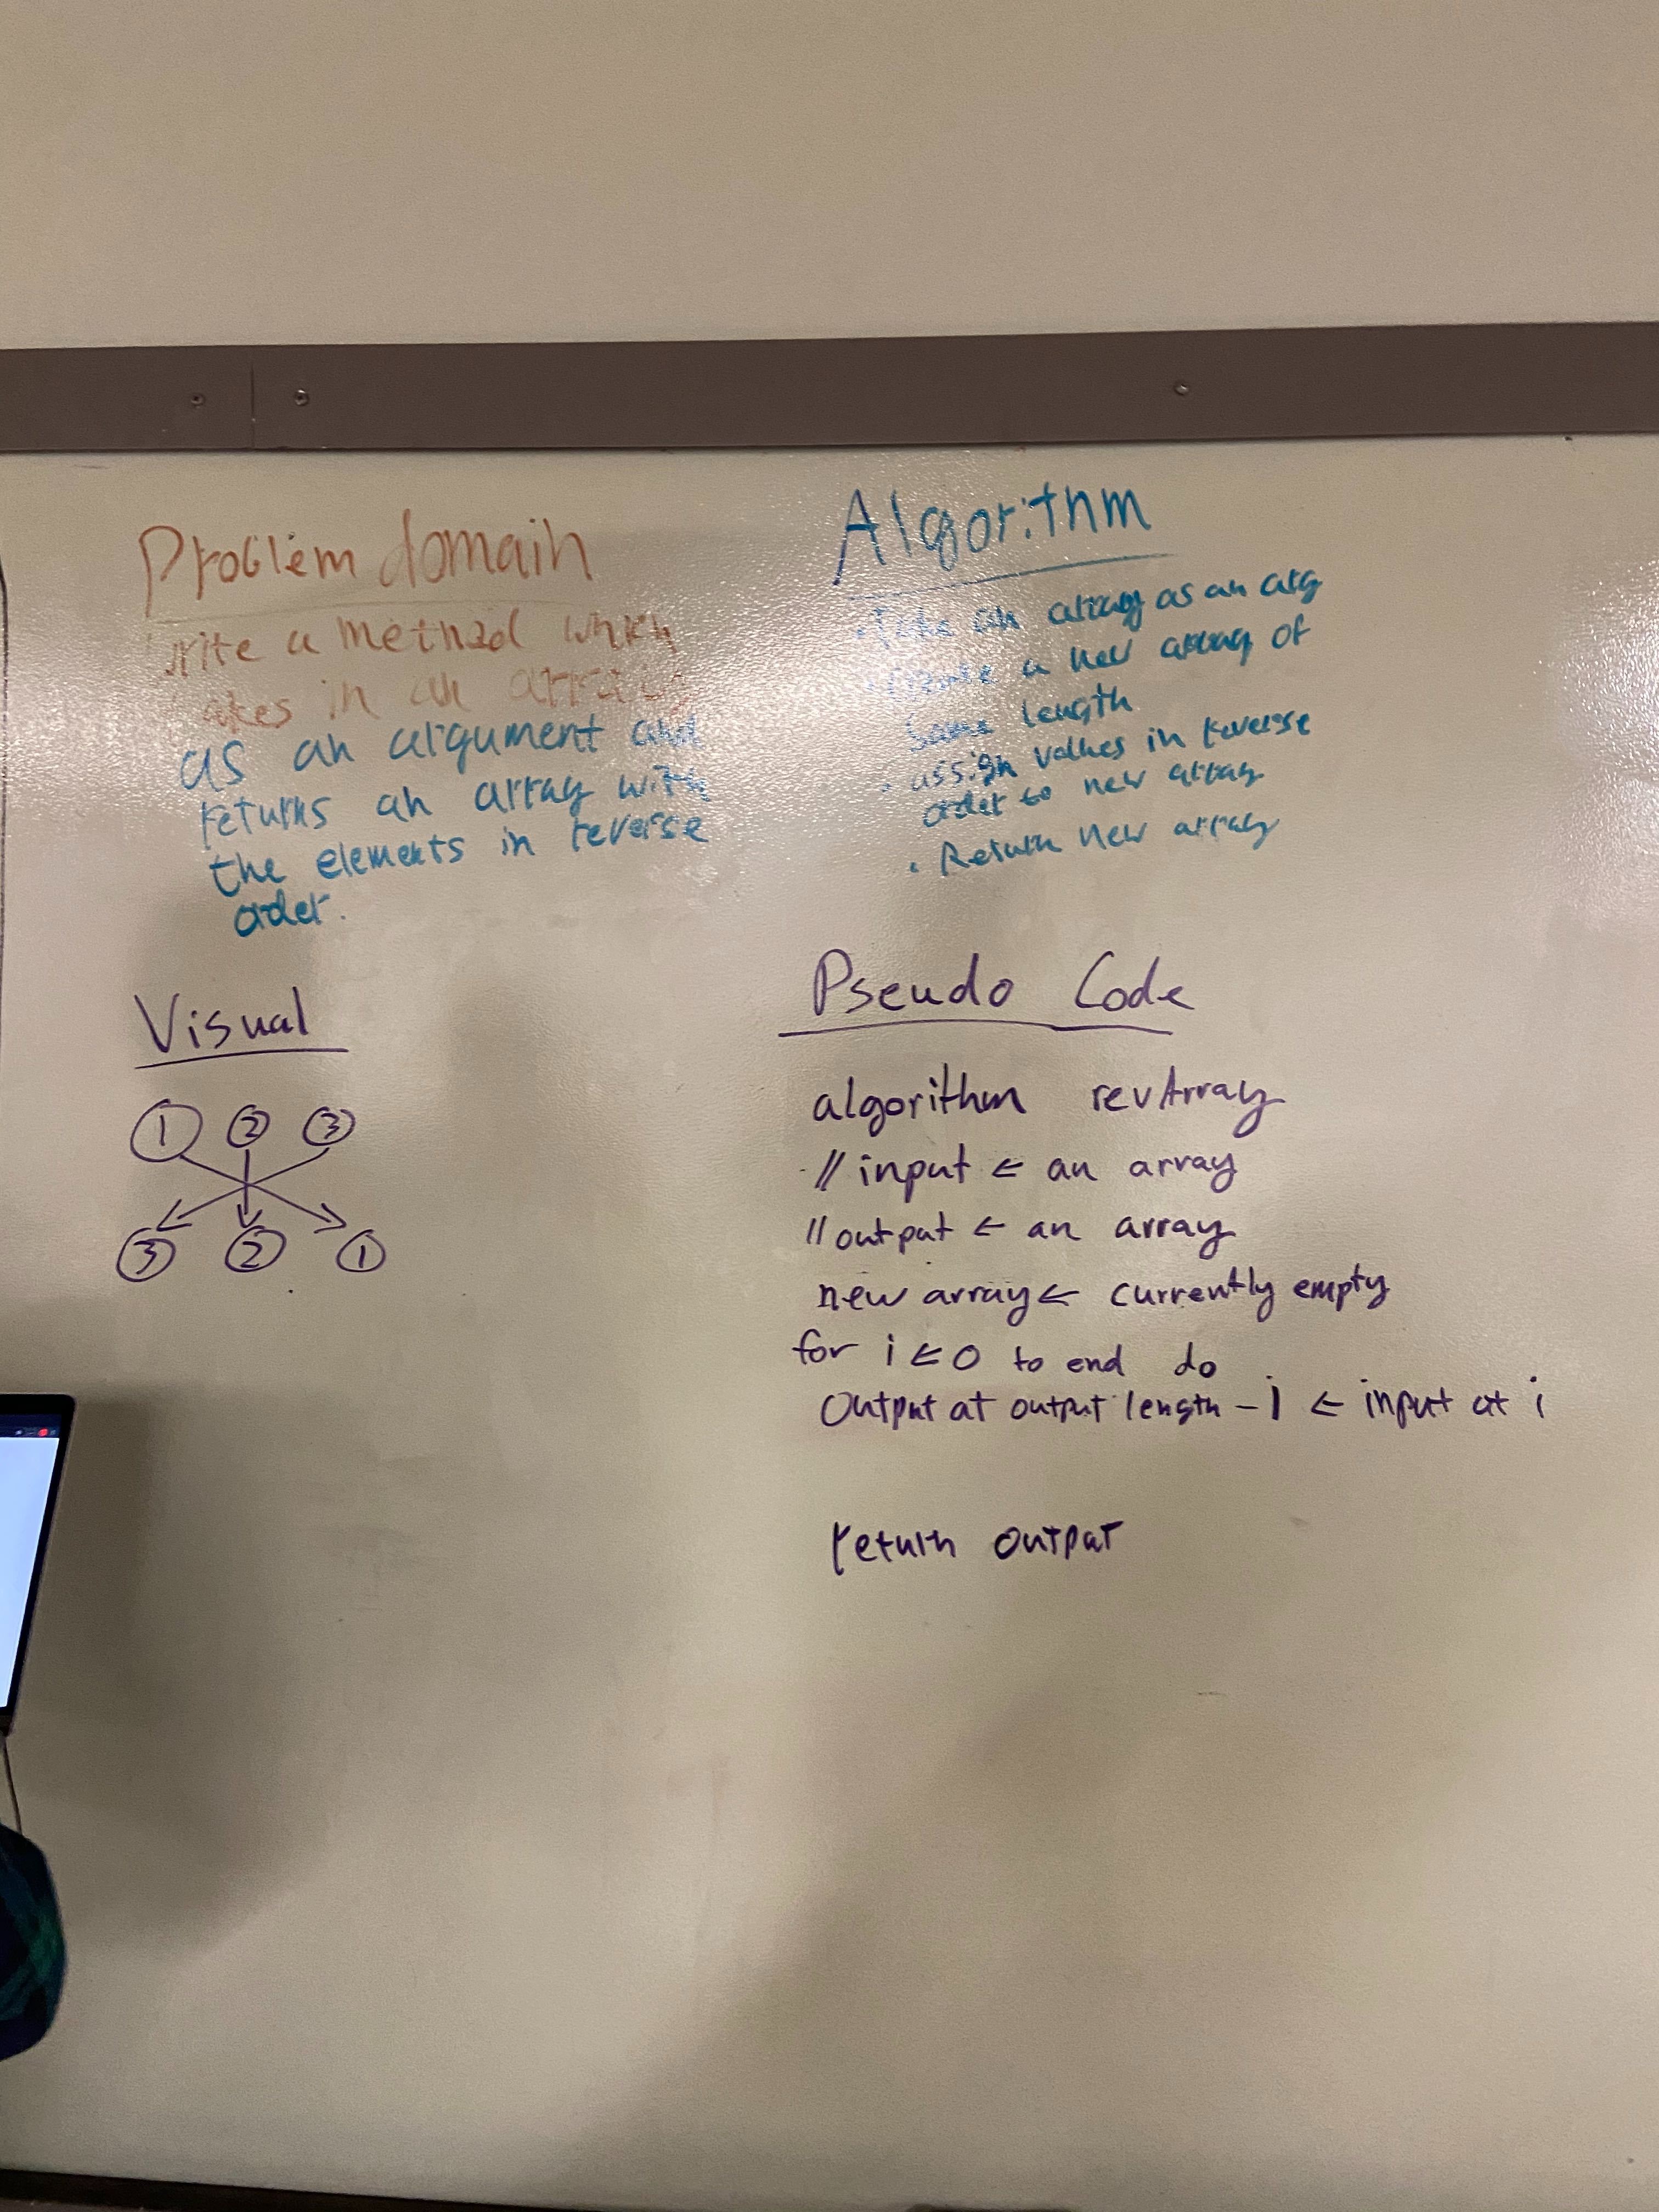 Problem domain
write a method which
takes in an array
as an argument and
returns an array with
the elements in reverse
order.
Algorithm
• Take an array as an arg
• Create a new array of
same length
• assign values in reverse
order to new array
• Return new array
Visual
1 2 3
3 2 1
Pseudo Code
algorithm revArray
// input ← an array
// output ← an array
new array ← currently empty
for i ← 0 to end do
Output at output length - i ← input at i
return output